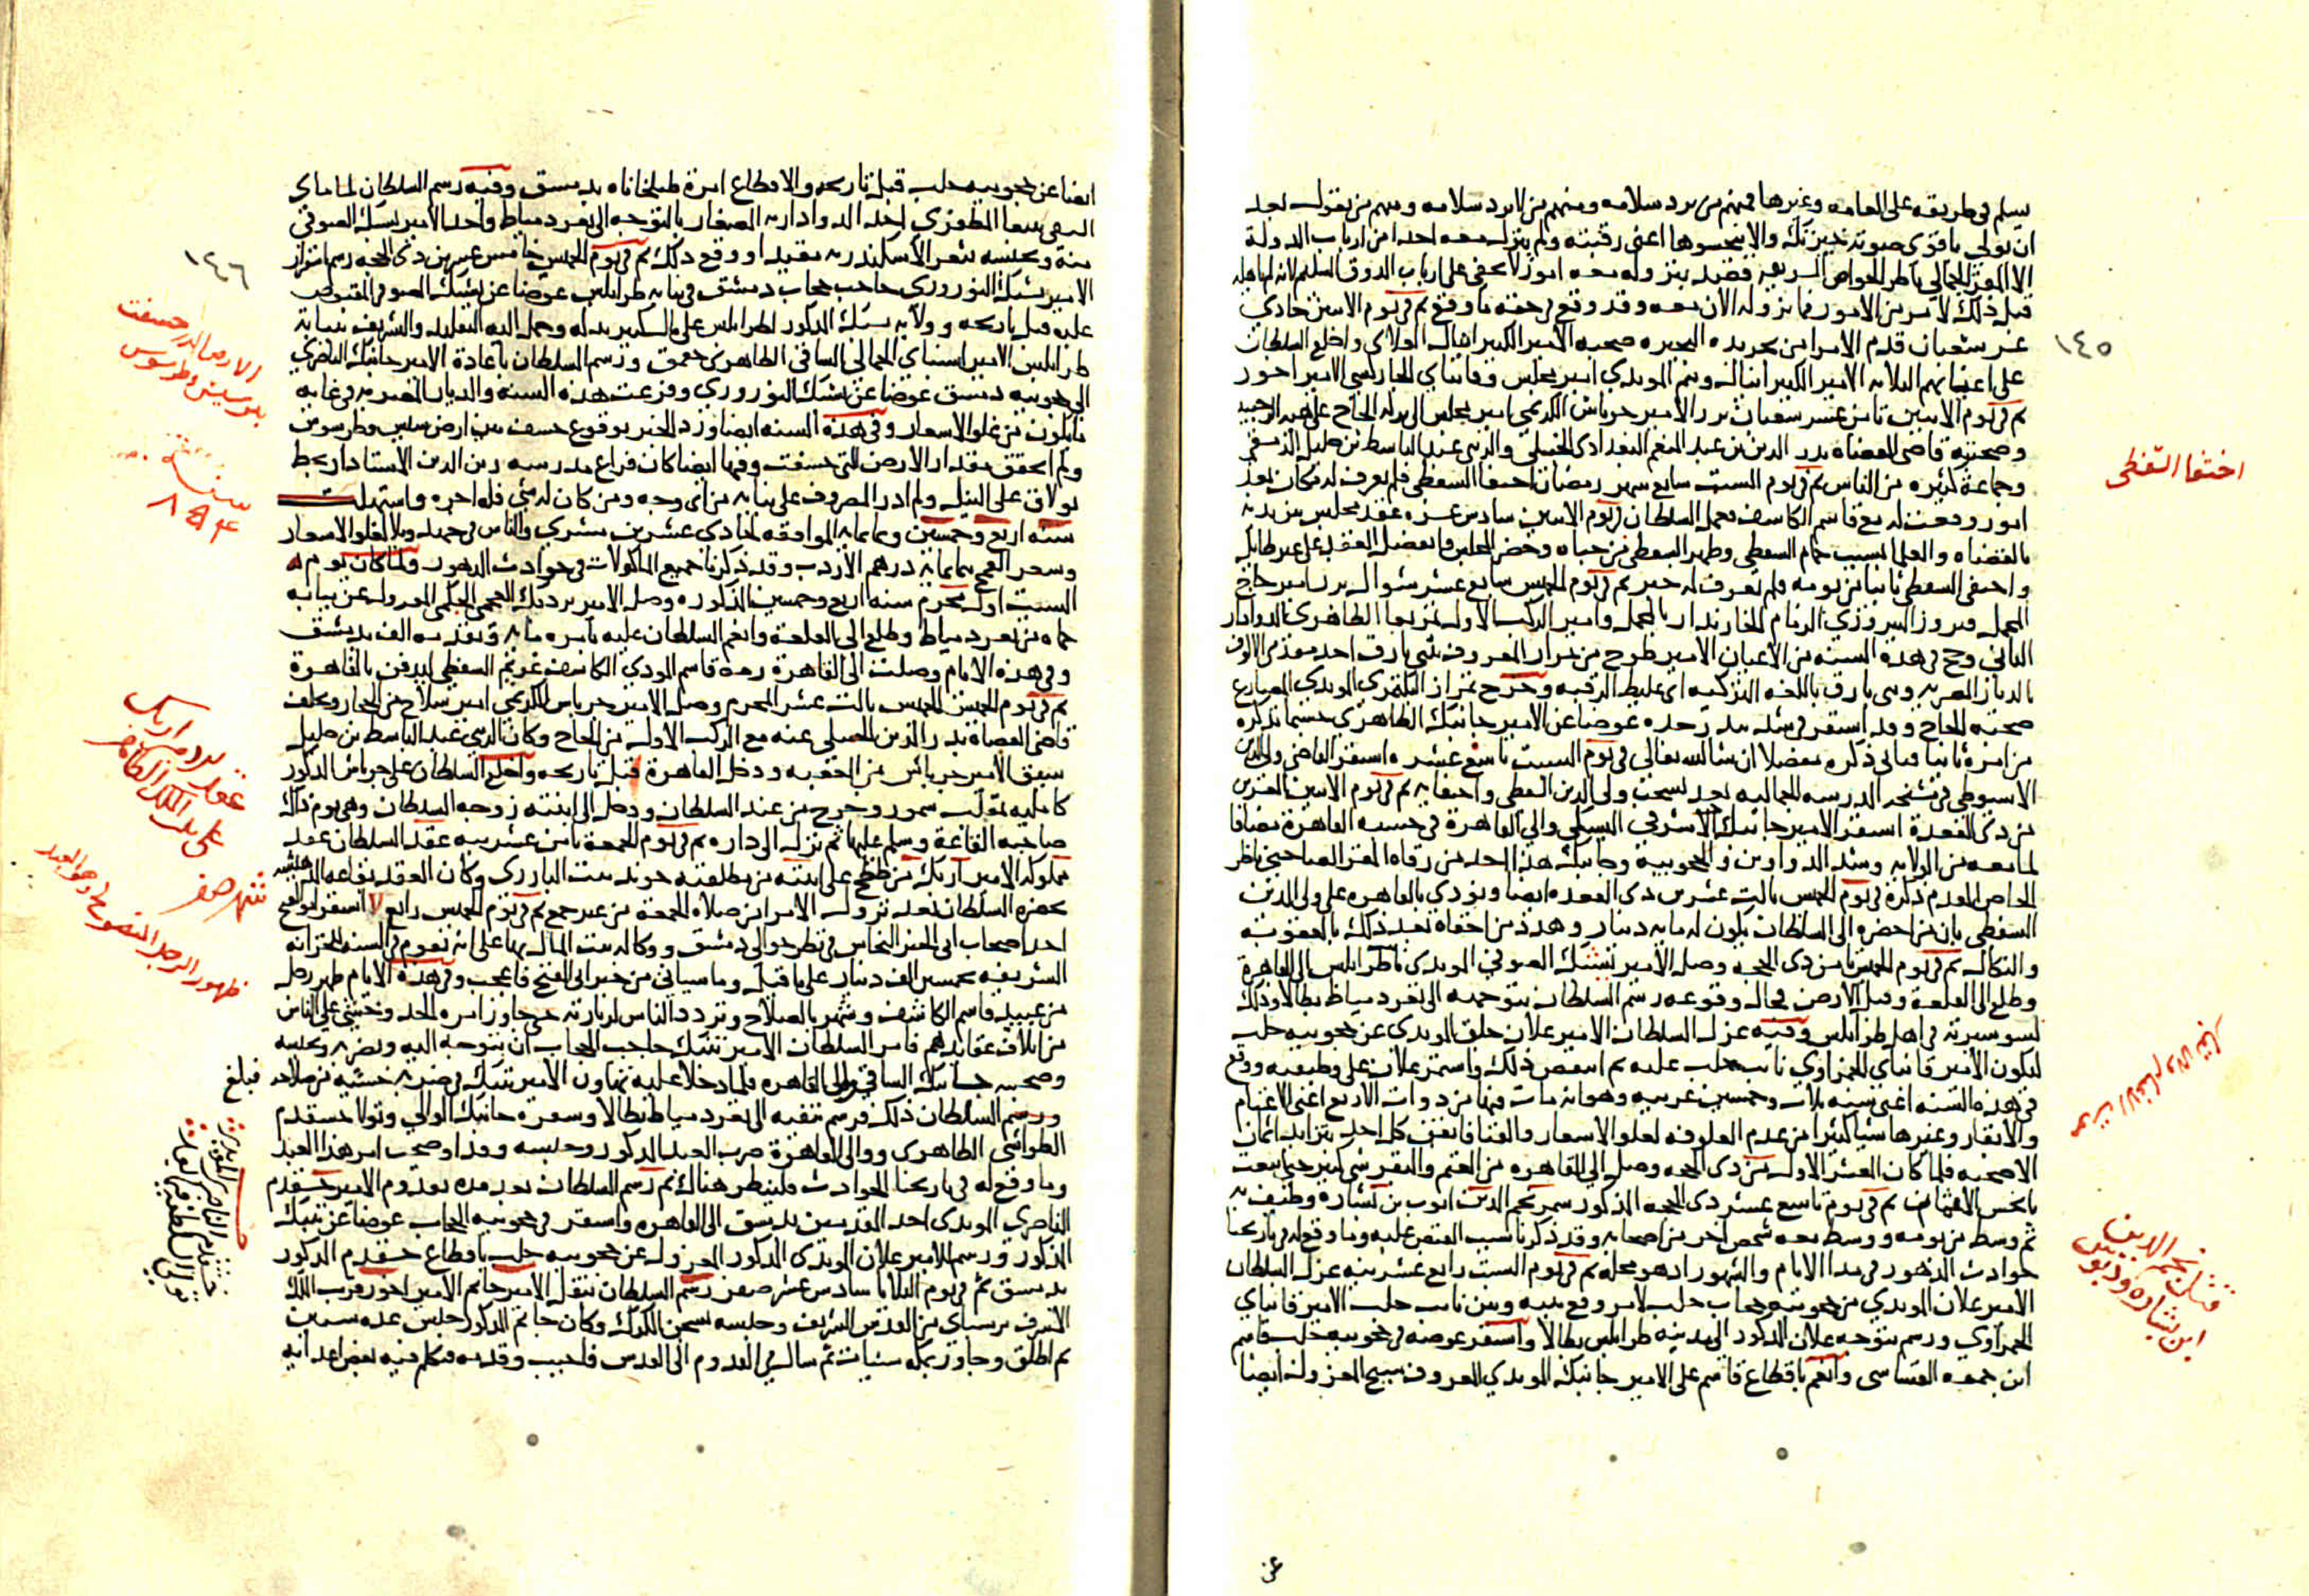 يسلم في طريقه على العامه وغيرها فمنهم من يرد سلامه ومنهم من لا يرد سلامه ومنهم من يقول بعد
ان يولي باقوى صوته والا يتحسوها اعنى رقبته ولم ينزل معه احدا من ارباب الدولة
الا المقر الجمالي ناظر الخواص الشريفه فقصد بنزوله معه امور لا تخفى على ارباب الذوق السليم لانه
قبل ذلك لامر من الامور فما نزوله الان معه وقد وقع في حقه ما وقع ثم في يوم الاثنين حادي
عشر شعبان قدم الامرا من تجريدة البحيره صحبه الامير الكبير اينال العلائى واخلع السلطان
على اعيانهم الثلاثه الامير الكبير اينال وتنم المويدي امير مجلس وقانباي الجاركسي الامير اخور
ثم في يوم الاثنين ثامن عشر شعبان برز الامير جرباش الكريمي امير مجلس الى بركه الحاج على
وصحبته قاضى القضاه بدر الدين بن عبد المنعم البغدادى الحنبلي والزينى عبد الباسط بن خليل الدمشقى
وجماعة كثيره من الناس ثم في يوم السبت سابع شهر رمضان اختفا السفطى فلم يعرف له مكان بعد
امور وقعت له مع قاسم الكاشف فعمل السلطان في يوم الاثنين سادس عشره عقد مجلس بين يديه
بالقضاه والعلما بسبب حمام السفطي وظهر السفطى من حياه وحضر المجلس فانفصل العقد على غير طايل
واختفى السفطى ثانيا من يومه فلم يعرف له خبر ثم في يوم الخميس سابع عشر شوال برز امير حاج
المحمل فيروز النوروزي الزمام الخازندار بالمحمل وامير الركب الاول تمربغا الظاهري الدوادار
الثاني وحج في هذه السنه من الاعيان الامير طوخ من تمراز المعروف بنى بازق احد مقدمي الالوف
بالديار المصريه وبنى بازق باللغه التركيه اى غليظ الرقبه وخرج تمراز البكتمري المويدي المصارع
صحبته الحاج وقد استقر في شد بندر جده عوضا عن الامير جانبك الظاهري حسبما نذكره
من امره ثانيا فياتى ذكره مفصلا ان شا الله تعالى في يوم السبت تاسع عشره استقر القاضى ولى الدين
الاسيوطي في مشيخه المدرسه الجماليه بعد تسحب ولى الدين السفطى واختفايه ثم في يوم الاثنين
من ذى القعدة استقر الامير جانبك الاشرفي اليشبكي والي القاهرة في حسبه القاهرة مضافا
لما معه من الولايه وشد الدواوين والحجوبيه وجانبك هذا احد من رقاه المقر الصاحبي ناظر
الخاص المقدم ذكره في يوم الخميس ثالث عشرين ذى القعده ايضا ونودي بالقاهره على ولى الدين
السفطى بان من احضره الى السلطان يكون له مايه دينار وهدد من اخفاه بعد ذلك بالعقوبه
والنكال ثم في يوم الخميس ثامن ذى الحجه وصل الامير يشبك الصوفي المويدي نائب طرابلس الى القاهرة
وطلع الى القلعة وقبل الارض فحال وقوعه رسم السلطان بتوجهه الى ثغر دمياط بطالا وذلك
لسو سيرته في اهل طرابلس وفيه عزل السلطان الامير علان جلق المويدى عن حجوبيه حلب
ليكون الامير قانباي الحمزاوي نائب حلب عليه ثم انتقض ذلك واستمر علان على وظيفته ووقع
في هذه السنه اعنى سنه ثلاث وخمسين غريبه وهو انه مات فيها من ذوات الاربع اعنى الاغنام
والابقار وغيرها شيا كثيرا من عدم العلوفه لغلو الاسعار والفنا فايقن كل احد بتزايد اثمان
الاضحيه فلما كان العشر الاول من ذى الحجه وصل الى القاهره من الغنم والبقر شى كثير حتى ابيعت
بابخس الاثمان ثم في يوم تاسع عشر ذى الحجه المذكور سمر نجم الدين ايوب بن بشاره وطيف به
ثم وسط من يومه ووسط معه شخص اخر من اصحابه وقد ذكرنا سبب القبض عليه وما وقع له في تاريخنا
حوادث الدهور في مدا الايام والشهور اذ هو محله ثم في يوم السبت رابع عشرينه عزل السلطان
الامير علان المويدي من حجوبيه حجاب حلب لامر وقع بينه وبين نائب حلب الامير قانباي
الحمزاوي ورسم بتوجه علان المذكور الى مدينه طرابلس بطالا واستقر عوضه في حجوبيه حلب قاسم
ابن جمعه القساسى وانعم باقطاع قاسم على الامير جانبك المويدي المعروف بشيخ المعزول ايضا
١٤٥
اختفا السفطى
قتل نجم الدين
ابن بشاره
عن
ايضا عن حجوبيه حلب قبل تاريخه والاقطاع امرة طبلخاناه بدمشق وفيه رسم السلطان لماماي
السيفى بيبغا المظفري احد الدوادارية الصغار بالتوجه الى ثغر دمياط واخذ الامير يشبك الصوفي
منه وبحبسه بثغر الاسكندريه مقيدا ووقع ذلك ثم في يوم الخميس خامس عشرين ذى الحجه رسم باستقرار
الامير يشبك النوروزي حاجب حجاب دمشق في نيابه طرابلس عوضا عن يشبك الصوفي المقبوض
عليه قبل تاريخه وولايه يشبك المذكور لطرابلس على مال كبير بذله وحمل اليه التقليد والتشريف بنيابة
طرابلس الامير اسنباي الجمالي الساقي الظاهري جقمق ورسم السلطان باعادة الامير جانبك الناصري
الى حجوبيه دمشق عوضا عن يشبك النوروزي وفرغت هذه السنه والديار المصريه في غايه
ما يكون من غلو الاسعار وفي هذه السنه ايضا ورد الخبر بوقوع خسف بين ارض سيس وطرسوس
ولم اتحقق مقدار الارض التي خسفت وفيها ايضا كان فراغ مدرسه زين الدين الاستادار بخط
بولاق على النيل ولم ادر المصروف على بنايه من اى وجه ومن كان له شي فله اجره واستهلت
سنه اربع وخمسين وثمانمايه الموافقه لحادى عشرين مسري والناس في جهد وبلا لغلو الاسعار
وسعر القمح ثمانمايه درهم الاردب وقد ذكرنا جميع الماكولات في حوادث الدهور ولما كان يوم
السبت اول محرم سنه اربع وخمسين المذكوره وصل الامير بردبك العجمي الجكمي المعزول عن نيابه
حماه من ثغر دمياط وطلع الى القلعة وانعم السلطان عليه بامره مايه وتقدمه الف بدمشق
وفي هذه الايام وصلت الى القاهرة رمه قاسم المودي الكاشف غريم السفطى ليدفن بالقاهرة
ثم في يوم الخميس ثالث عشر المحرم وصل الامير جرباش الكريمى امير سلاح من الحجاز وتخلف
قاضى القضاة بدر الدين الحنبلى عنه مع الركب الاول من الحاج وكان الزينى عبد الباسط بن خليل
سبق الامير جرباش من العقبه ودخل القاهرة قبل تاريخه واخلع السلطان على جرباش المذكور
كامليه بمقلب سمور وخرج من عند السلطان ودخل الى ابنته زوجه السلطان وهي يوم ذاك
صاحبه القاعة وسلم عليها ثم نزل الى داره ثم في يوم الجمعة ثامن عشرينه عقد السلطان عقد
مملوكه الامير ازبك من ططخ على ابنته من مطلقته خوند بنت البارزى وكان العقد بقاعه الدهيشه
بحضرة السلطان بعد نزول الامرا من صلاه الجمعة من غير جمع ثم في يوم الخميس رابع استقر ابو الفتح
احد اصحاب ابى الخير النحاس في نظر جوالى دمشق ووكاله بيت المال بها على انه يقوم في السنه للخزانه
الشريفه بخمسين الف دينار على ما قيل وما سياتى من خبر ابى الفتح فاعجب وفي هذه الايام ظهر رجل
من عبيد قاسم الكاشف وشهر بالصلاح وتردد الناس لزيارته حتى جاوز امره الحد وخشى على الناس
من اتلاف عقايدهم فامر السلطان الامير تنبك حاجب الحجاب ان يتوجه اليه ويضربه ويحبسه
وصحبه جانبك الساقي والى القاهره فلما دخلا عليه تهاون الامير تنبك في ضربه خشيه من صلاحه فبلغ
السلطان ذلك فرسم بنفيه الى ثغر دمياط بطالا وسفره جانبك الوالي وتولا خشقدم
الطواشى الظاهرى ووالى القاهرة ضرب العبد المذكور وحبسه
وما وقع له في تاريخنا الحوادث فلينظر هناك ثم رسم السلطان بعد مده بقدوم الامير خشقدم
الناصري المويدى احد المقدمين بدمشق الى القاهره واستقر في حجوبيه الحجاب عوضا عن تنبك
المذكور ورسم للامير علان المويدى المذكور المعزول عن حجوبيه حلب باقطاع خشقدم المذكور
بدمشق ثم في يوم الثلاثا سادس عشر صفر رسم السلطان بنقل الامير جانم الامير اخور قريب الملك
الاشرف برسباي من القدس الشريف وحبسه بسجن الكرك وكان جانم المذكور حبس عده سنين
ثم اطلق وجاور بمكه سنيات ثم سال في القدوم الى القدس فاجيب وقدمه فتكلم فيه بعض اعدائه
١٤٦
الارض التى خسفت
بين سيس وطرسوس
سنه
٨٥٤
شهر صفر